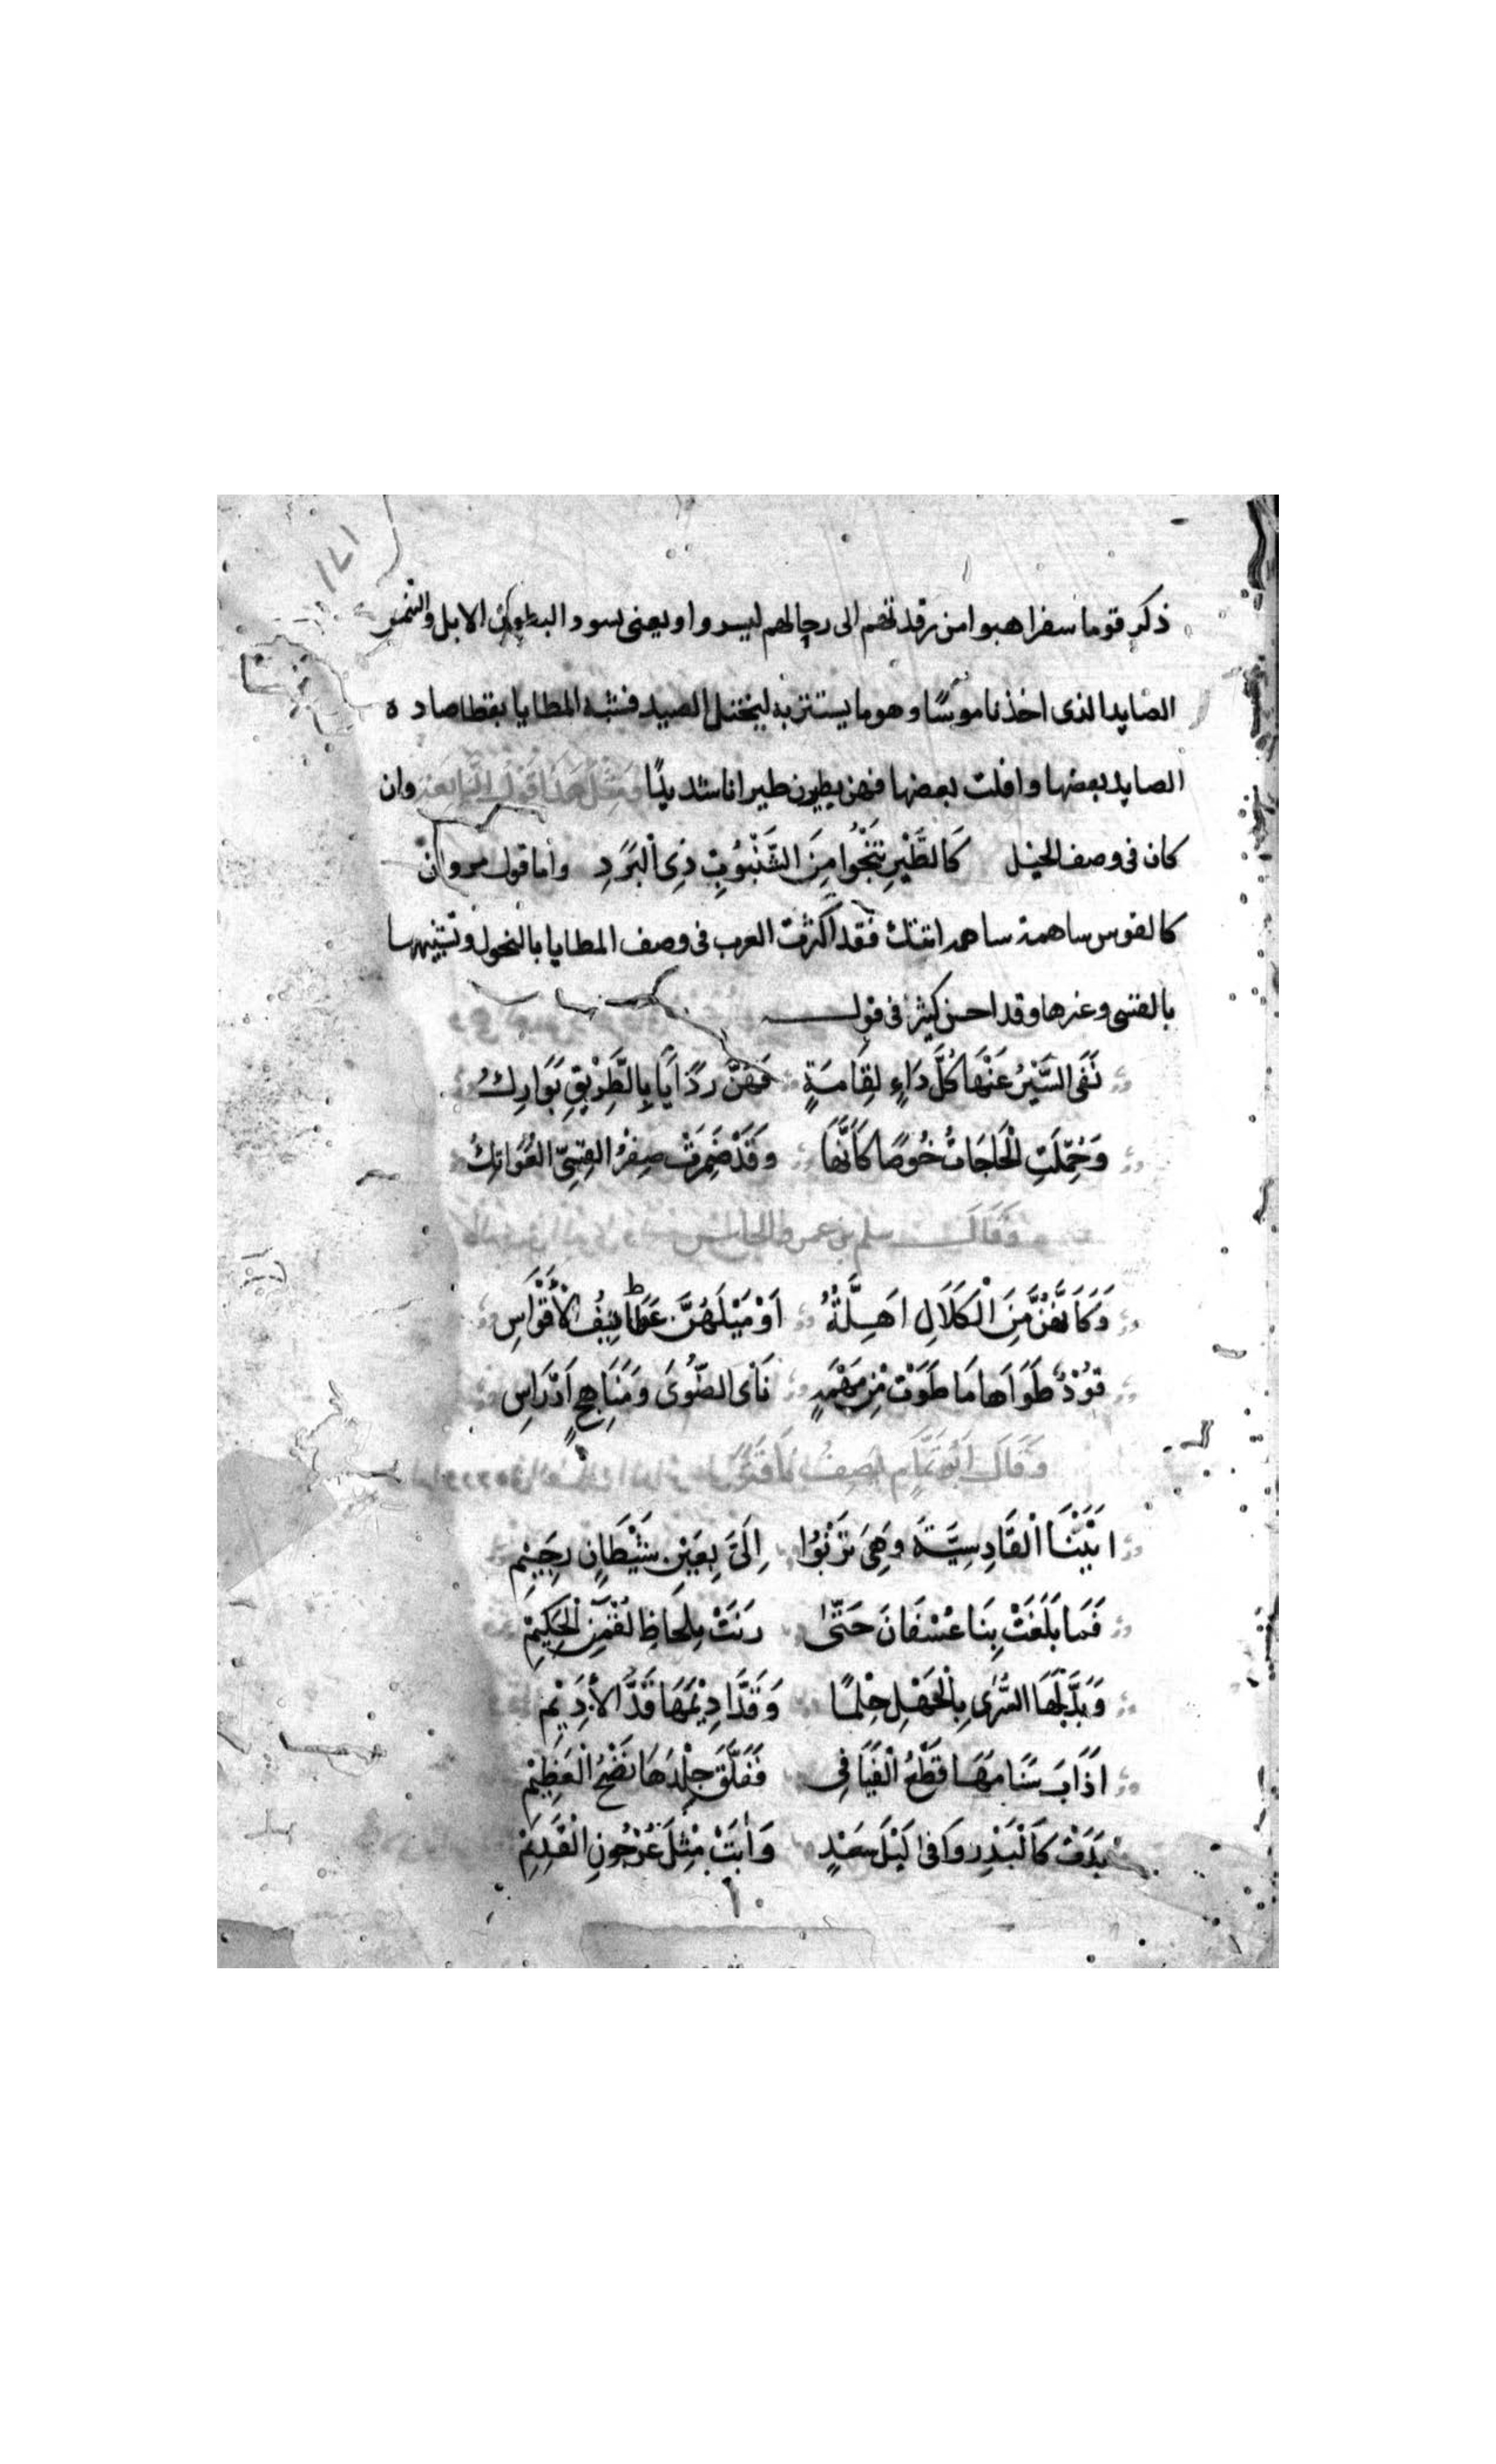 ١٧١
ذكر قوما سفرا هبوا من رقدتهم الى رحالهم ليسروا ويعنى بسود البطون الابل والنمر
الصايد الذى اخذ ناموسًا وهو ما يستتر به ليختل الصيد فشبه المطايا بقطا صاده
الصايد بعضها وافلت بعضها فهن يطيرن طيرانا شديدًا ومثل هذا قول النابغة وان
كان فى وصف الخيل كَالطَّيْرِ تَنْجُوا مِنَ الشُّنْبُوْبِ ذِى الْبَرَدِ واما قول مروان
كالقوس ساهمة اتتك فقد اكثرت العرب فى وصف المطايا بالنحول وتشبيهها
بالقسى وغيرها وقد احسن كثير فى قوله
نَفَى السَّيْرُ عَنْهَا كُلَّ دَاءِ لِقَامَةٍ فَهُنَّ رَذَايَا بِالطَّرِيْقِ بَوَارِكُ
وَحُمِّلَتِ الْحَاجَاتُ خُوصًا كَأَنَّهَا وَقَدْ ضَمِرَتْ صِفْرُ الْقِسِىّ الْعَوَاتِكُ
وَقَالَ سلم بن عمرو الخاسر
وَكَأَنَّهُنَّ مِنَ الْكَلَالِ اَهِلَّةٌ اَوْ مِثْلَهُنَّ عَطَائِفُ الْأَقْوَاسِ
قُوْدٌ طَوَاهَا مَا طَوَتْ مِنْ مَهْمَهٍ نَائى الصُّوَى وَمَنَاهِجٍ اَدْرَاسِ
وَقَالَ اَبُو تَمَّامٍ يَصِفُ نَاقَتَهُ
اتَيْنَا الْقَادِسِيَّةَ وَهِىَ تَرْنُوْا اِلَىَّ بِعَيْنِ شَيْطَانٍ رَجِيْمِ
فَمَا بَلَغَتْ بِنَا عُسْفَانَ حَتّٰى رَنَتْ بِلَحَاظِ لُقْمٰنِ الْحَكِيْمِ
وَبَدَّلَهَا السُّرٰى بِالْجَهْلِ حِلْمًا وَقَدَّ اَدِيْمَهَا قَدَّ الْأَدِيْمِ
اَذَابَ سَنَامَهَا قَطْعُ الْفَيَافِى فَفَلَّقَ جِلْدَهَا نَضْحُ الْعَظِيْمِ
بَدَتْ كَالْبَدْرِ وَافٰى لَيْلَ سَعْدٍ وَاٰبَتْ مِثْلَ عُرْجُونِ الْقَدِيْمِ